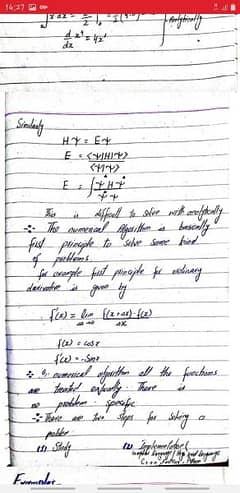 14:27
d/dx x⁴ = 4x³
Analytically
Similarly
Hψ = Eψ
E = <ψ|H|ψ>
<ψ|ψ>
E = ∫ψ*Hψ
ψ*ψ
This is difficult to solve with analytically
The numerical algorithm is basically
first principle to solve some kind
of problems.
for example first principle for ordinary
derivative is given by
f'(x) = lim f(x+Δx)-f(x)
Δx→0 Δx
f(x) = cosx
f'(x) = -Sinx
In numerical algorithm all the functions
are treated equally. There is
no problem specific
There are two steps for solving a
problem.
(1) Study (2) Implementation
Example